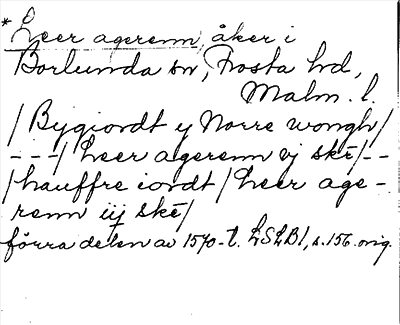 * Leer agerenn, åker i
Borlunda sn, Frosta hd,
Malm. l.
/ Bygiordt y Norre wongh /
---/ Leer agerenn vj skē /--
/ hauffre iordt / Leer age-
renn iij skē /
förra delen av 1570-t. LSLB1, s. 156. orig.